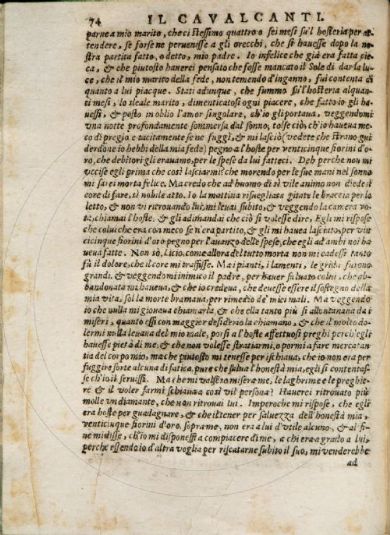 74 IL CAVALCANTI.
parue a mio marito, che ci stessimo quattro o sei mesi su l'hosteria per at
tendere, se forse ne peruenisse a gli orecchi, che si hauesse dopo la no
stra partita fatto, o detto, mio padre. Io infelice che già era fatta cie
ca, & che piutosto hauerei pensato che fosse mancato il Sole di dar la lu
ce, che il mio marito della fede, non temendo d'inganno, fui contenta di
quanto a lui piacque. Stati adunque, che fummo su l'hosteria alquan
ti mesi, lo sleale marito, dimenticatosi ogni piacere, che fatto io gli ha
uessi, & posto in oblio l'amor singolare, ch'io gli portaua, veggendomi
vna notte profondamente sommersa dal sonno, tolse ciò, ch'io haueua me
co di pregio e tacitamente se ne fuggì, & mi lasciò (vedete che strano gui
derdone io hebbi della mia fede) pegno a l'hoste per venticinque fiorini d'o
ro, che debitori gli erauamo, per le spese da lui fatteci. Deh perche non mi
vccise egli prima che così lasciarmi? che morendo per le sue mani nel sonno
mi sarei morta felice. Ma credo che ad huomo di sì vile animo non diede il
core di fare, sì nobile atto. Io la mattina risuegliata gittate le braccia per lo
letto, & non vi ritrouando lui, mi leuai subito, & veggendo la camera vo
ta, chiamai l'hoste, & gli adimandai che ciò si volesse dire, Egli mi rispose
che colui che era con meco se n'era partito, & gli mi hauea lasciato, per vin
ticinque fiorini d'oro pegno per l'auanzo delle spese, che egli ad ambi noi ha
ueua fatte. Non io, Licio, come allora del tutto morta non mi cadessi tanto
fù il dolore, che il core mi trafisse. Ma i pianti, i lamenti, le grida furono
grandi, & veggendomi inimico il padre, per hauer seguito colui, che ab-
bandonata mi haueua, & che io credeua, che douesse essere il sostegno della
mia vita, sol la morte bramaua, per rimedio de' miei mali. Ma veggendo
io che nulla mi giouaua chiamarla, & che ella tanto più si allontanaua da i
miseri, quanto essi con maggior desiderio la chiamano, & che il molto do-
lermi nulla leuaua del mio male, porsi a l'hoste affettuosi preghi perche egli
hauesse pietà di me, & che non volesse stratiarmi, o pormi a fare mercatan-
tia del corpo mio, ma che piutosto mi tenesse per ischiaua, che io non era per
fuggire sorte alcuna di fatica, pure che salua l'honestà mia, egli si contentas-
se ch'io li seruissi. Ma che mi valsero misera me, le lagrime e le preghie-
re & il voler farmi schiaua a così vil persona? Hauerei ritrouato più
molle vn diamante, che non ritrouai lui. Imperoche mi rispose, che egli
era hoste per guadagnare, & che il tener per saluezza dell'honestà mia,
venticinque fiorini d'oro, sopra me, non era a lui d'vtile alcuno, & al fi-
ne mi disse, ch'io mi disponessi a compiacere di me, a chi era a grado a lui,
perche essendo io d'altra voglia per riscatarne subito il suo, mi venderebbe
ad